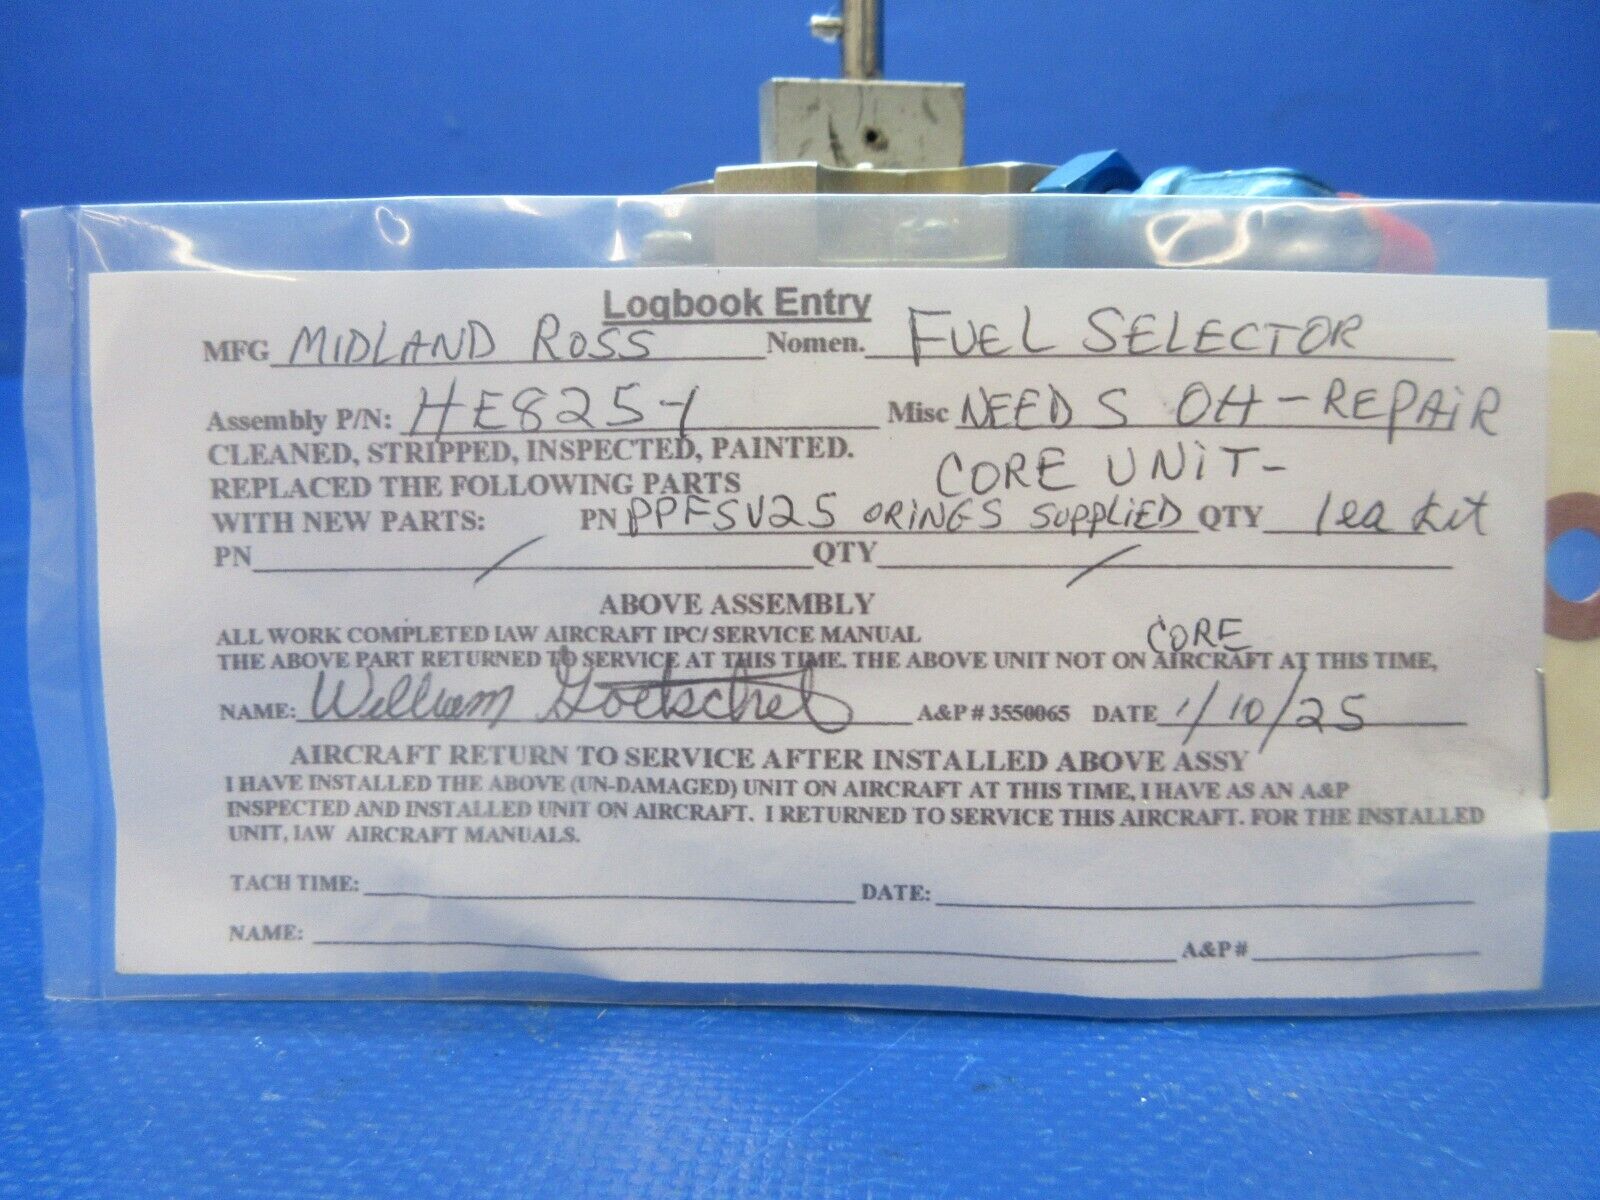 Logbook Entry
MFG MIDLAND ROSS Nomen. FUEL SELECTOR
Assembly P/N: HE825-1 Misc NEEDS OH-REPAIR
CLEANED, STRIPPED, INSPECTED, PAINTED. CORE UNIT-
REPLACED THE FOLLOWING PARTS
WITH NEW PARTS: PN PPFSV25 ORINGS SUPPLIED QTY 1ea kit
PN / QTY /
ABOVE ASSEMBLY
ALL WORK COMPLETED IAW AIRCRAFT IPC/ SERVICE MANUAL CORE
THE ABOVE PART RETURNED TO SERVICE AT THIS TIME. THE ABOVE UNIT NOT ON AIRCRAFT AT THIS TIME,
NAME: William Goetschel A&P # 3550065 DATE 1/10/25
AIRCRAFT RETURN TO SERVICE AFTER INSTALLED ABOVE ASSY
I HAVE INSTALLED THE ABOVE (UN-DAMAGED) UNIT ON AIRCRAFT AT THIS TIME, I HAVE AS AN A&P
INSPECTED AND INSTALLED UNIT ON AIRCRAFT. I RETURNED TO SERVICE THIS AIRCRAFT. FOR THE INSTALLED
UNIT, IAW AIRCRAFT MANUALS.
TACH TIME: DATE:
NAME: A&P #